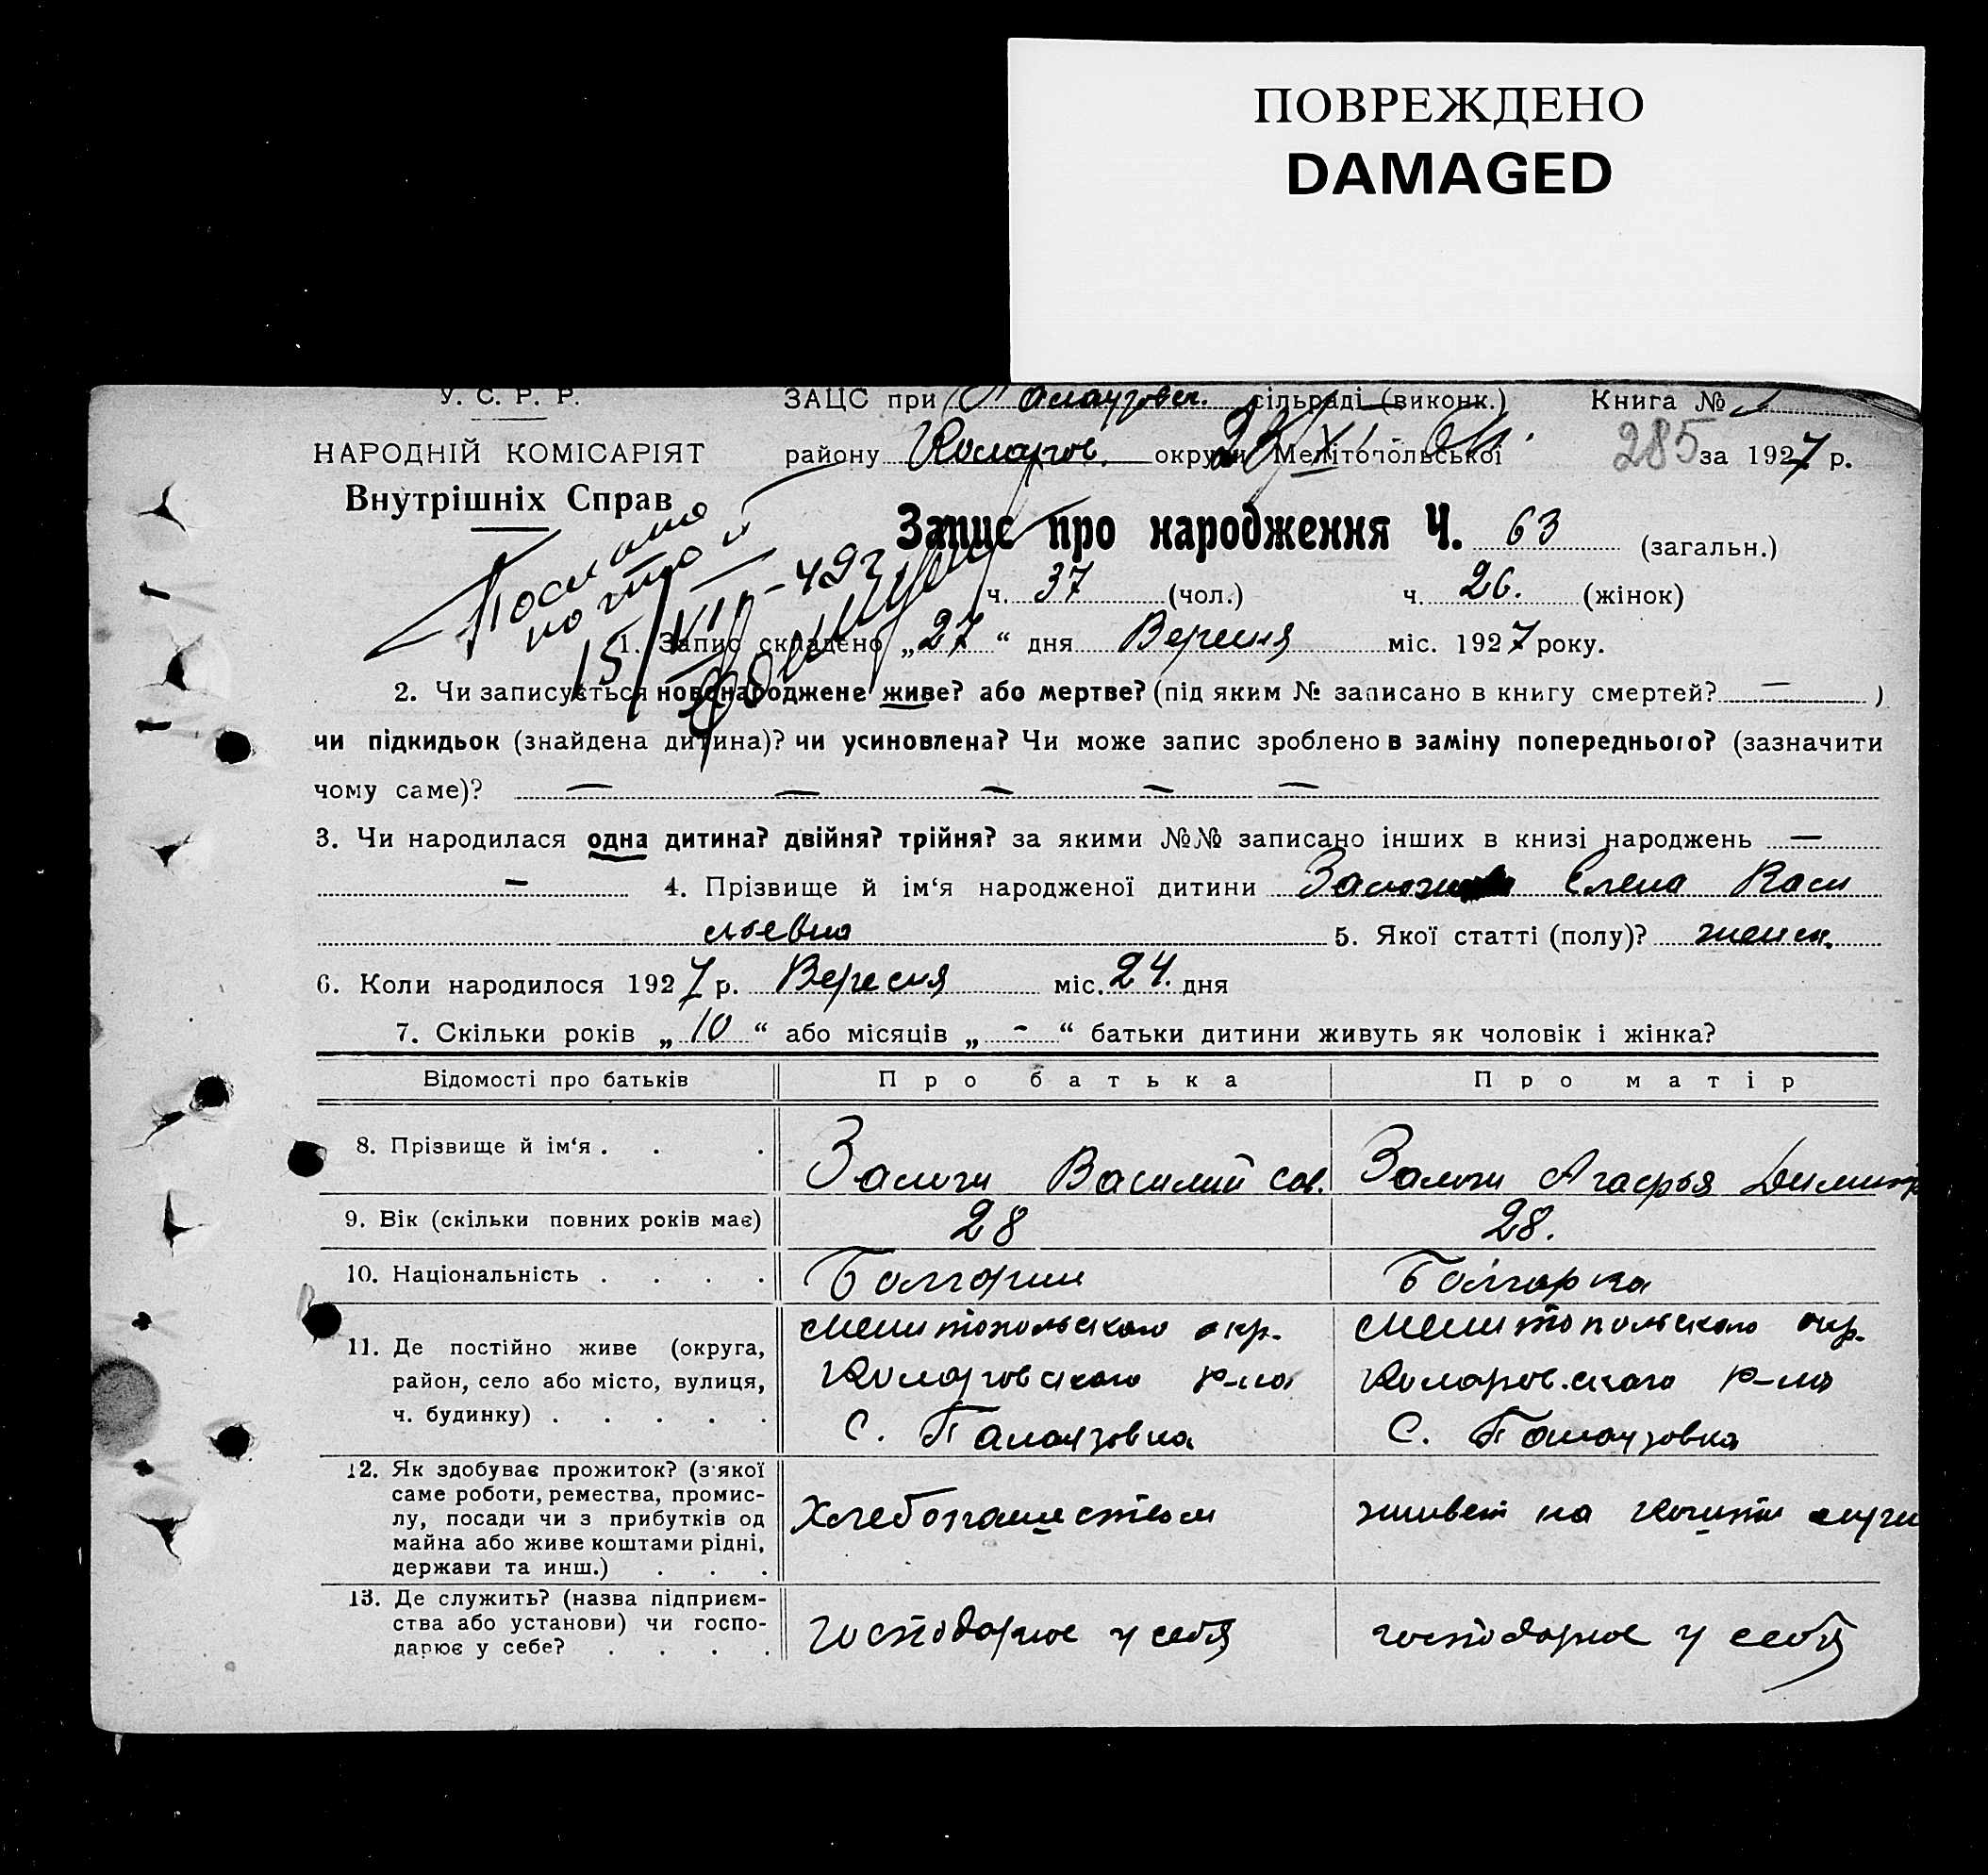 ПОВРЕЖДЕНО
DAMAGED
У. С. Р. Р.
ЗАЦС при Палаузовск. сільраді (виконк.) Книга №
НАРОДНІЙ КОМІСАРІЯТ
району Комаров. округи Мелітопольської 285 за 1927 р.
Внутрішніх Справ
Запис про народження Ч. 63 (загальн.)
ч. 37 (чол.) ч. 26. (жінок)
1. Запис складено „27“ дня Вересня міс. 1927 року.
2. Чи записується новонароджене живе? або мертве? (під яким № записано в книгу смертей? — )
чи підкидьок (знайдена дитина)? чи усиновлена? Чи може запис зроблено в заміну попереднього? (зазначити
чому саме)? — — — — —
3. Чи народилася одна дитина? двійня? трійня? за якими №№ записано інших в книзі народжень —
— 4. Прізвище й ім‘я народженої дитини Елена Васи
льевна 5. Якої статті (полу)? женск.
6. Коли народилося 1927 р. Вересня міс. 24. дня
7. Скільки років „10“ або місяців „-“ батьки дитини живуть як чоловік і жінка?
Відомості про батьків Про батька Про матір
8. Прізвище й ім‘я . . . Василий Сав. Агафья Димитр
9. Вік (скільки повних років має) 28 28.
10. Національність . . . . Болгарин Болгарка
11. Де постійно живе (округа, Мелитопольского окр. Мелитопольского окр.
район, село або місто, вулиця, Комаровского р-на Комаров.ского р-на
ч. будинку) . . . . . С. Палаузовка С. Палаузовка
12. Як здобуває прожиток? (з'якої
саме роботи, ремества, промис-
лу, посади чи з прибутків од Хлебопашеством живет на
майна або живе коштами рідні,
держави та инш.) . . .
13. Де служить? (назва підприєм-
ства або установи) чи госпо- господарює у себя господарює у себя
дарює у себе? . . . .